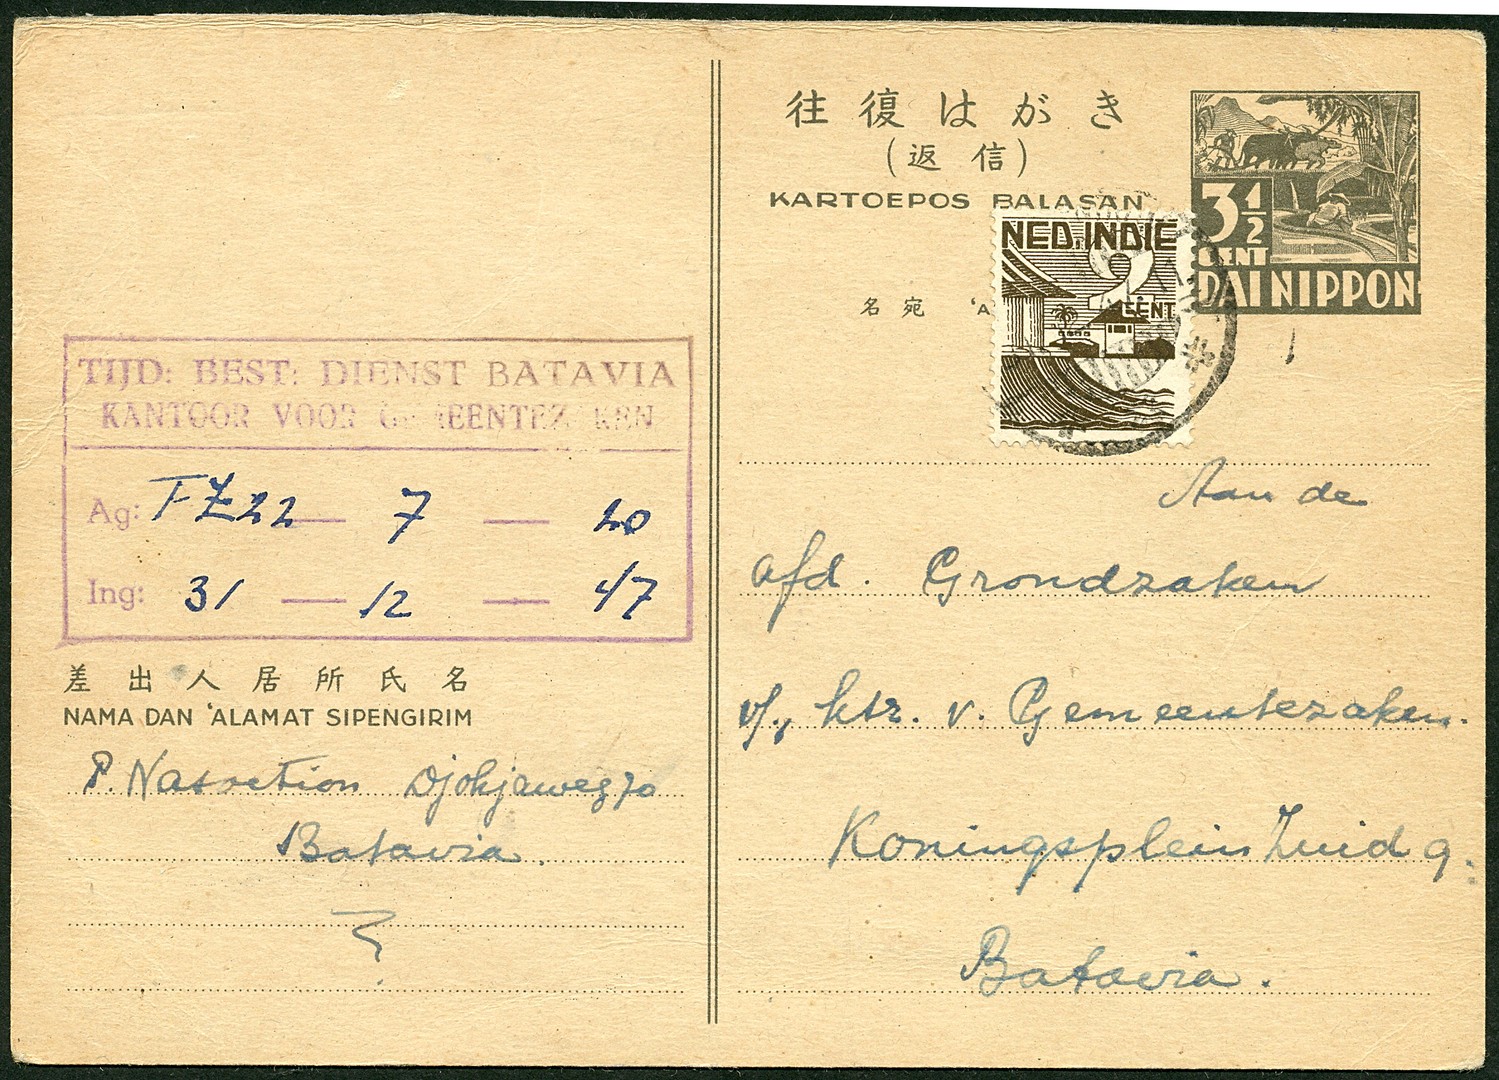 往復はがき
(返信)
KARTOEPOS BALASAN
3½
CENT
DAI NIPPON
NED. INDIE
2
CENT
名宛 'A
TIJD: BEST: DIENST BATAVIA
KANTOOR VOOR GEMEENTEZAKEN
Ag: FZ22 — 7 — 20
Ing: 31 — 12 — 47
差出人居所氏名
NAMA DAN 'ALAMAT SIPENGIRIM
P. Nasoetion Djokjaweg 70
Batavia.
Aan de
afd. Grondzaken
v/h. ktr. v. Gemeentezaken.
Koningsplein Zuid 9.
Batavia.